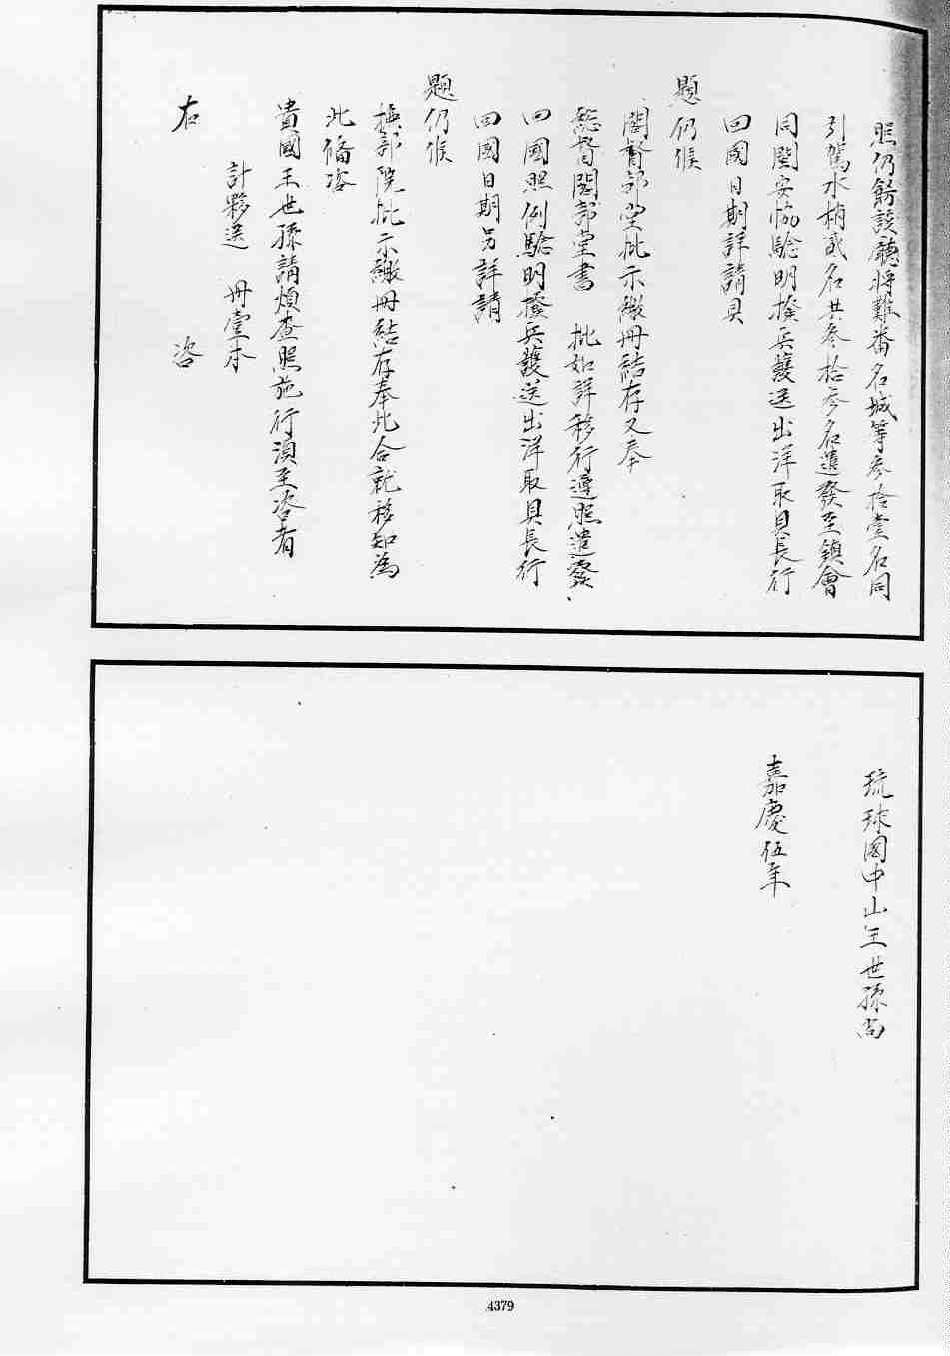 照仍飭該廳將難番名城等叁拾壹名同
引駕水梢貳名共叁拾叁名遣發至鎮會
同閩安協驗明撥兵護送出洋取具長行
回國日期詳請具
題仍候
閣督部堂批示繳冊結存又奉
總督閣部堂書　批如詳移行遵照遣發
回國照例驗明撥兵護送出洋取具長行
回國日期另詳請
題仍候
撫部院批示繳冊結存奉此合就移知為
此備咨
貴國王世孫請煩查照施行須至咨者
計移送　冊壹本
右　咨
琉球國中山王世孫尚
嘉慶伍年
4379